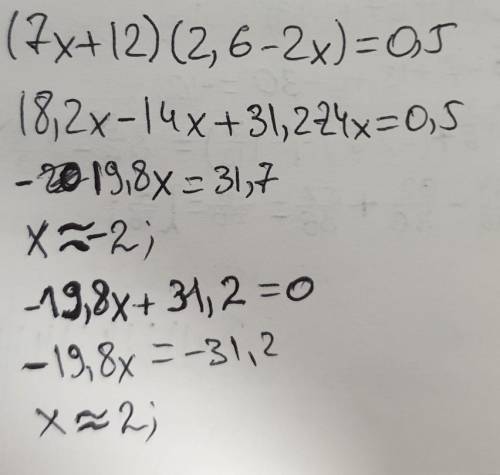 (7x+12)(2,6-2x)=0,5
18,2x-14x+31,224x=0,5
-19,8x=31,7
x≈-2;
-19,8x+31,2=0
-19,8x=-31,2
x≈2;